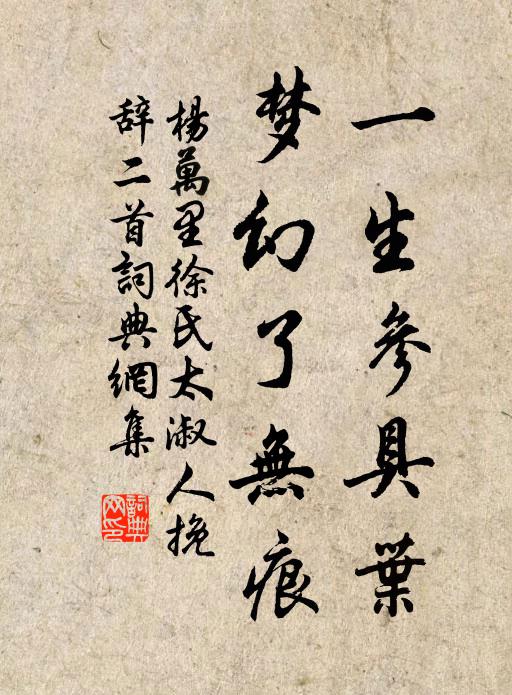 一生參具葉
梦幻了無痕
楊萬里徐氏太淑人挽
辞二首詞典網集
詞典網印